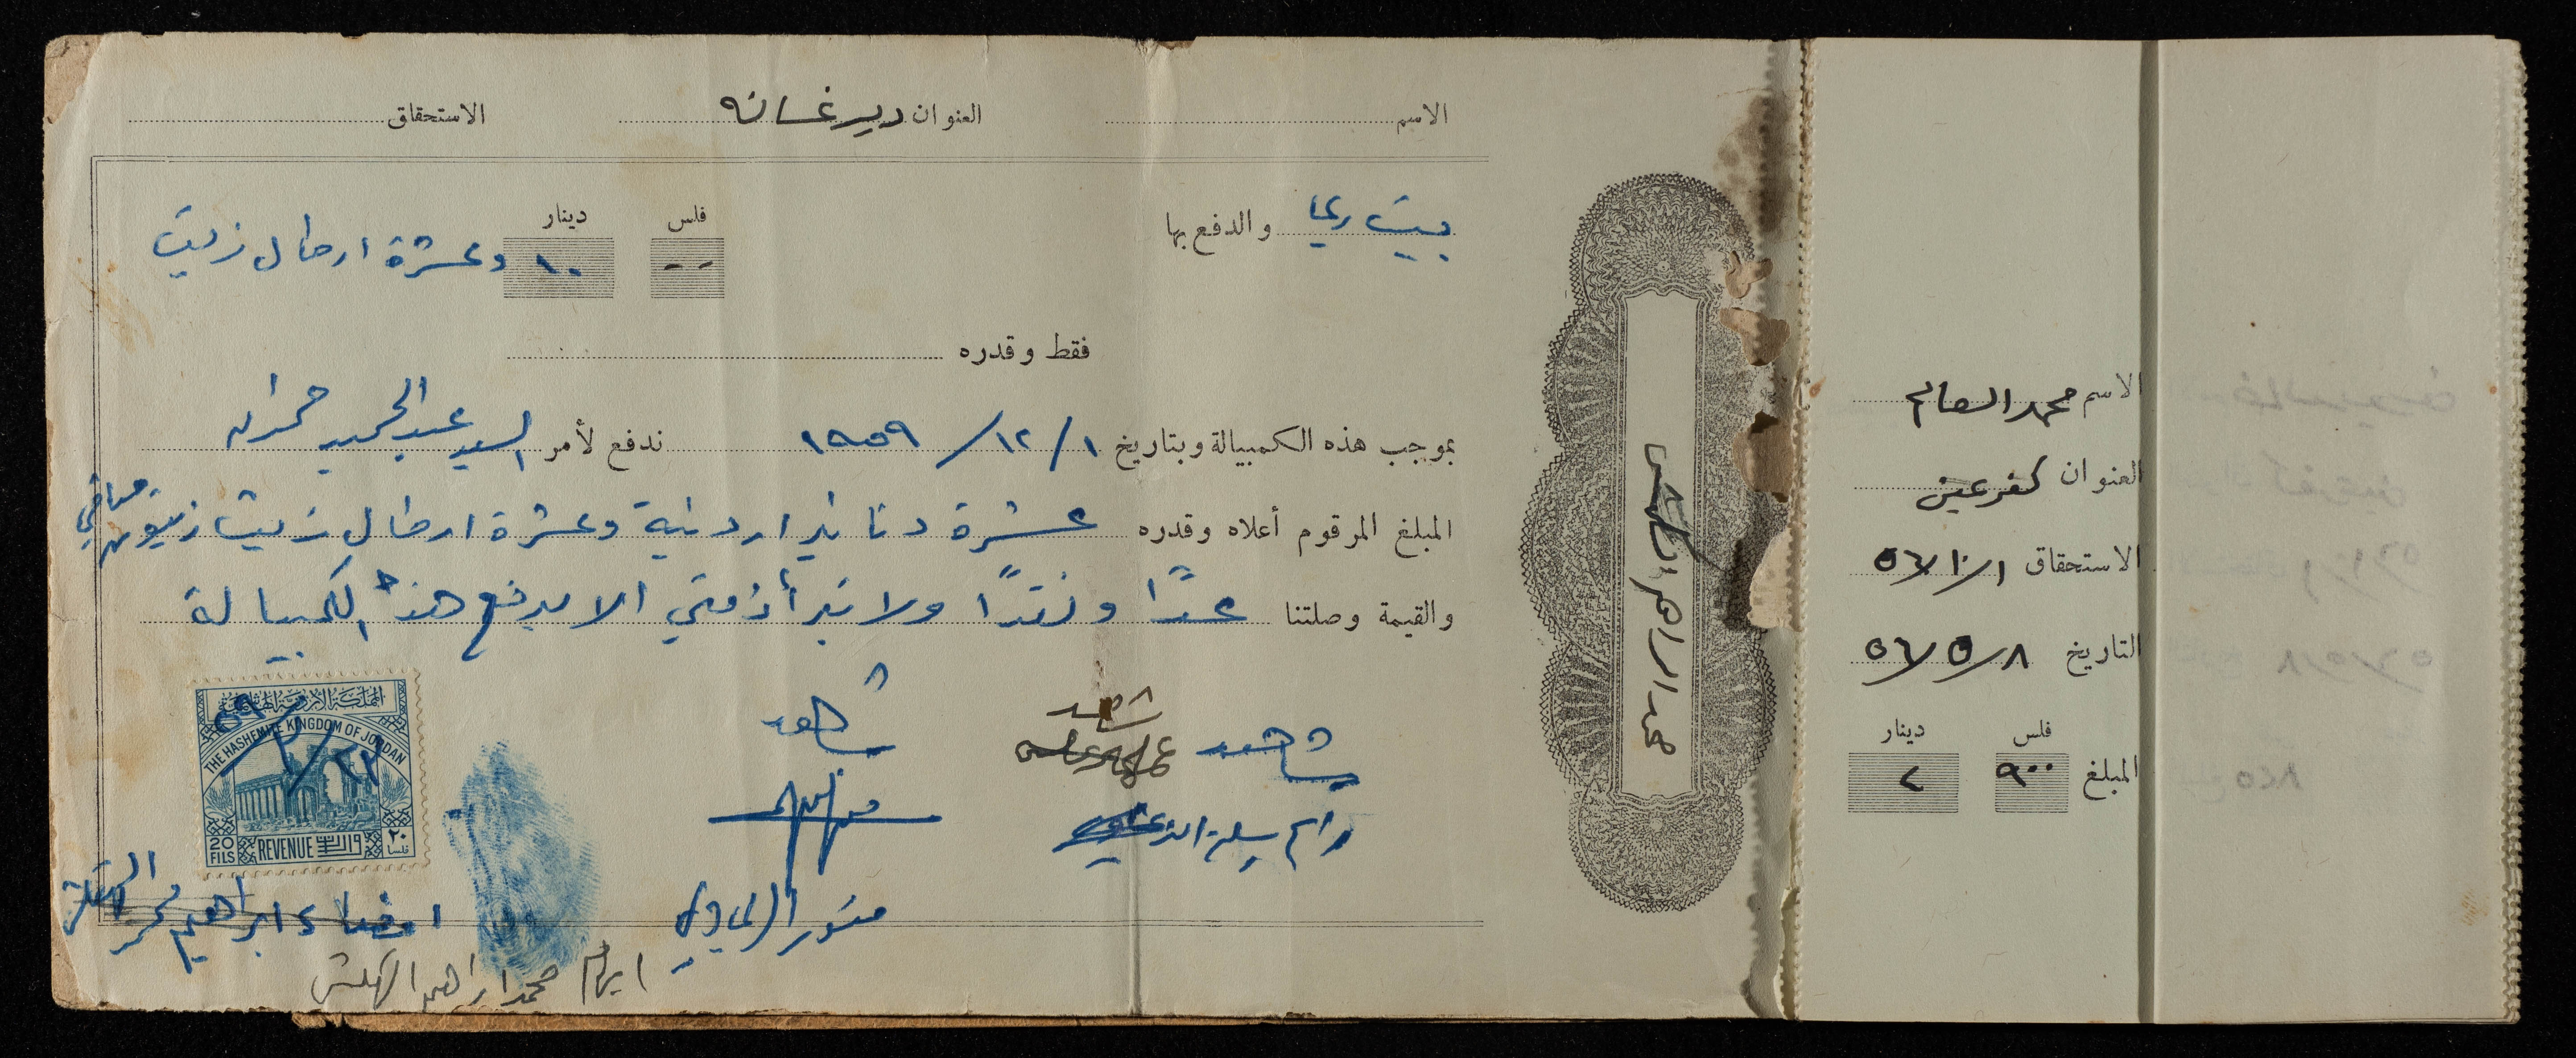 الاسم العنوان دير غسانه الاستحقاق
بيت ريما والدفع بها
فلس دينار
-- ١٠ وعشرة ارطال زيت
فقط وقدره
بموجب هذه الكمبيالة وبتاريخ ١/ ١٢/ ١٩٥٩ ندفع لأمر السيد عبد الحميد حمدان
المبلغ المرقوم أعلاه وقدره عشرة دنانير اردنية وعشرة ارطال زيت زيتون صافي
والقيمة وصلتنا عدًا ونقدًا ولا تبرأ ذمتي الا بدفع هذه الكمبيالة
شاهد شاهد شاهد
المملكة الأردنية الهاشمية
THE HASHEMITE KINGDOM OF JORDAN
٢٢/ ٢/ ٥٩
20 FILS REVENUE الواردات ٢٠ فلسا
امضاء ابراهيم محمد
ابهام محمد ابراهيم
محمد ابراهيم
الاسم محمد الصالح
العنوان كفر عين
الاستحقاق ١/ ١٠/ ٥٦
التاريخ ٨/ ٥/ ٥٦
فلس دينار
المبلغ ٩٠٠ ٢